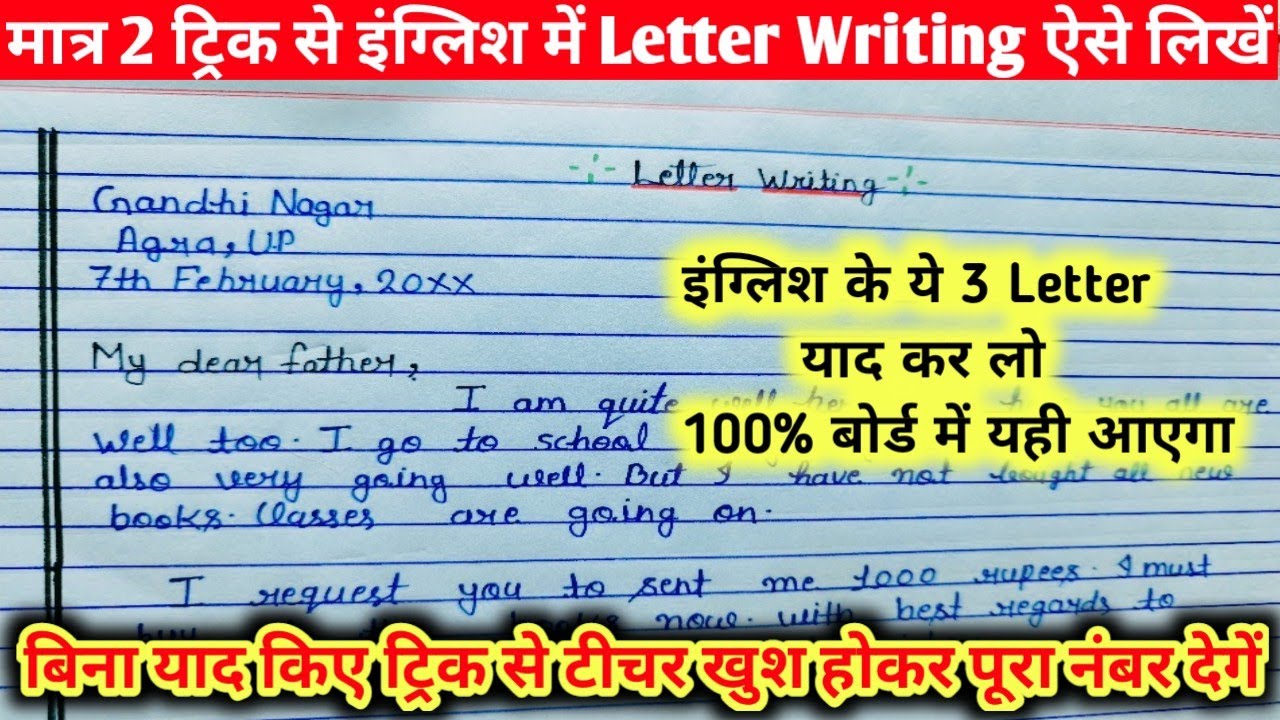 मात्र 2 ट्रिक से इंग्लिश में Letter Writing ऐसे लिखें
Letter Writing
Gandhi Nagar
Agra, UP
7th February, 20xx
इंग्लिश के ये 3 Letter
याद कर लो
100% बोर्ड में यही आएगा
My dear father,
I am quite you all are
well too. I go to school
also very going well. But I have not bought all new
books. Classes are going on.
I request you to sent me 1000 rupees. I must
now. with best regards to
बिना याद किए ट्रिक से टीचर खुश होकर पूरा नंबर देगें